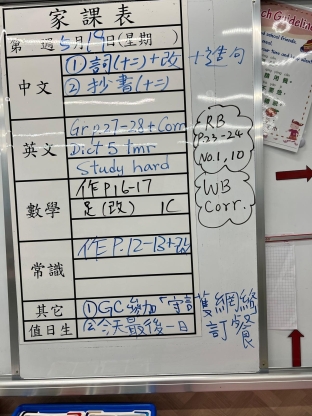 家課表
第 週 5月19日(星期 )
中文
①詞(十二)+改 +造句
②抄書(十二)
英文
Gr p.27-28 + Corr
Dict 5 tmr
Study hard
RB
P.23-24
No.1, 10
數學
作 P.16-17
(改) 1C
WB
Corr.
常識
作 P.12-13+改
其它
①GC參加「守 護網絡
值日生
②今天最後一日 訂餐
Guideline